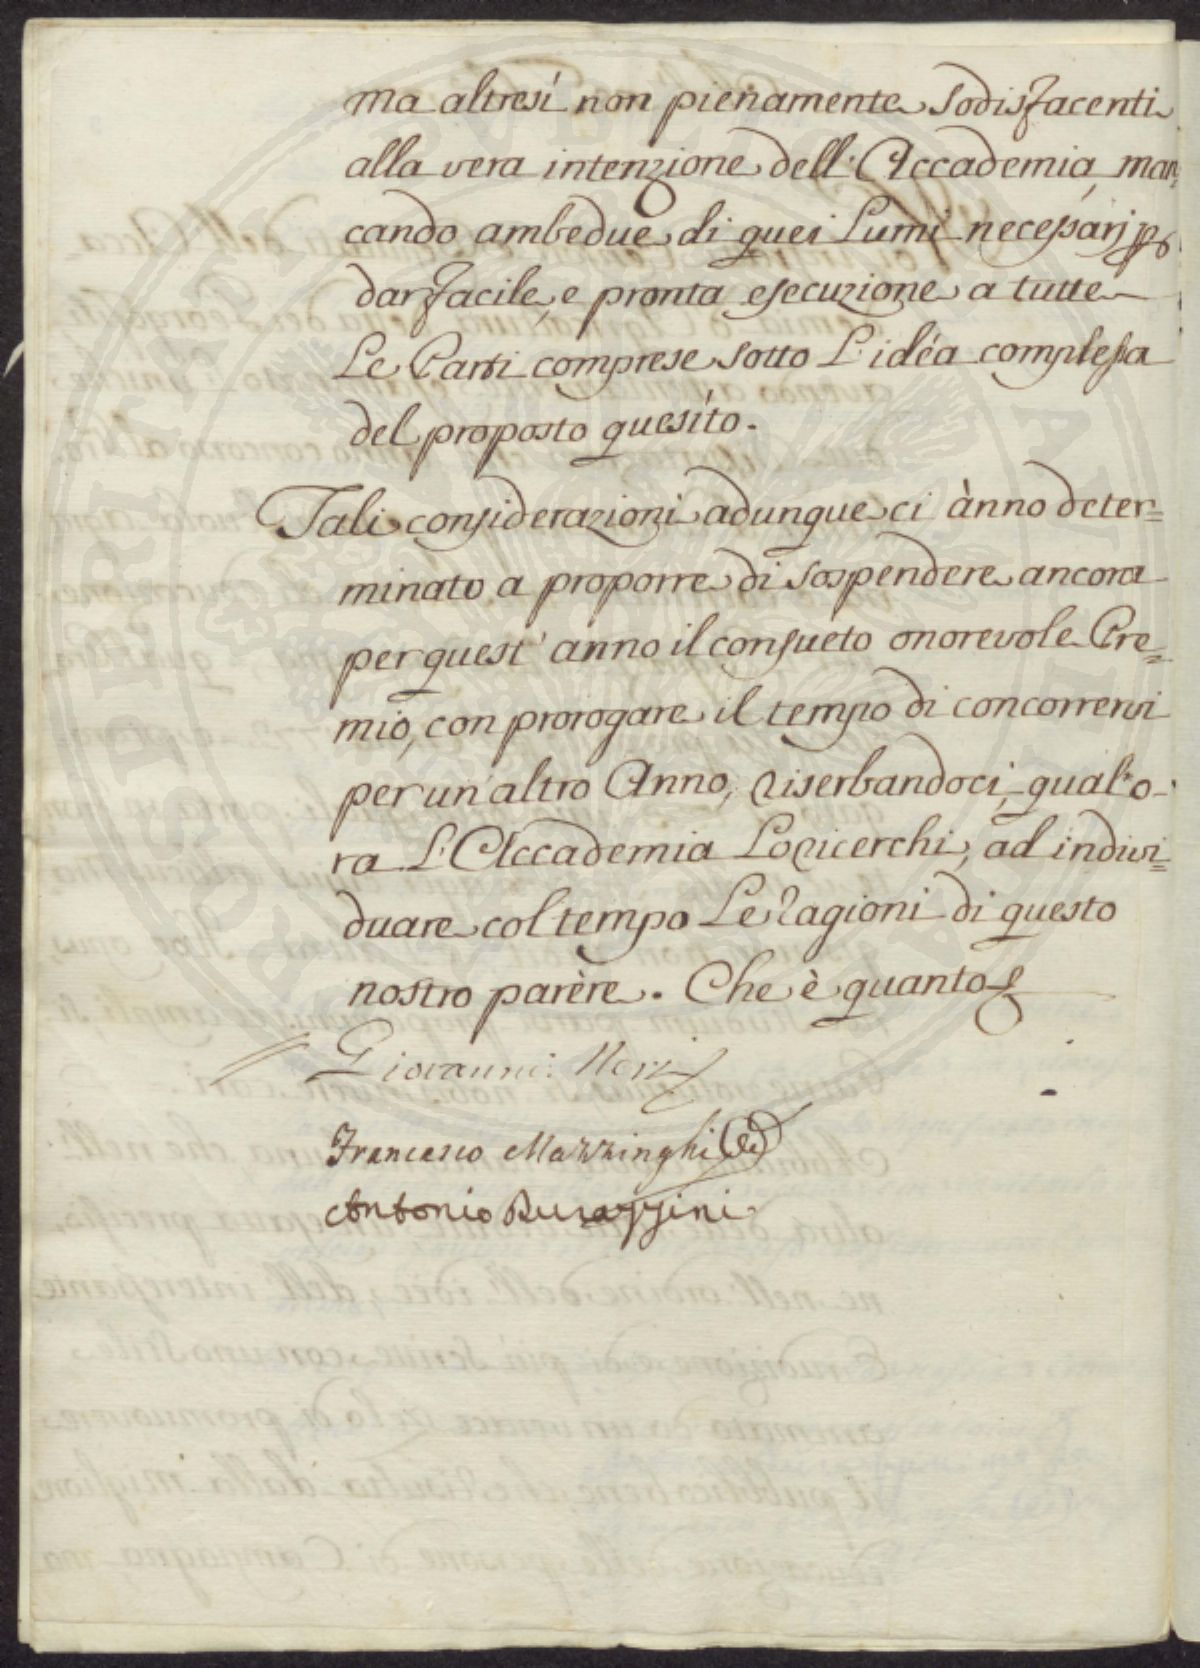 ma altresì non pienamente sodisfacenti
alla vera intenzione dell'Accademia, man=
cando ambedue di quei Lumi necessarj p
dar facile, e pronta esecuzione a tutte
Le Parti comprese sotto L'idéa complessa
del proposto quesíto.
Tali considerazioni adunque ci ànno deter=
minato a proporre di sospendere ancora
per quest'anno il consueto onorevole Pre=
mio, con prorogare il tempo di concorrervi
per un'altro Anno, riserbandoci, qual'o-
ra L'Accademia Lo ricerchi, ad indivi=
duare col tempo Le ragioni di questo
nostro parère. Che è quanto
Giovanni Neri
Francesco Mazzinghi
Antonio Durazzini
PROSPERITATI PUBLICAE AUGENDAE